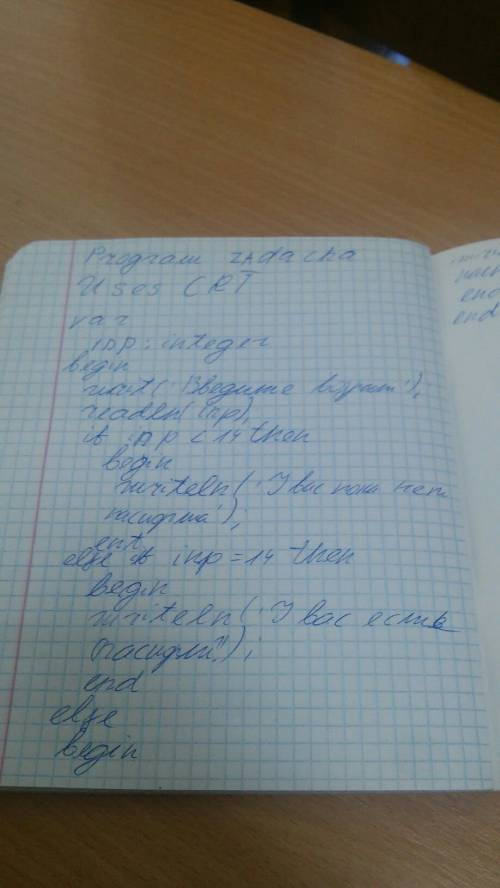 Program zAdacha
Uses CRT
var
inp : integer
begin
writ('Введите возраст');
readln(inp);
if inp < 14 then
begin
writeln('У вас пока нет
паспорта');
ent
else if inp = 14 then
begin
writeln('У вас есть
паспорт');
end
else
begin
end
end